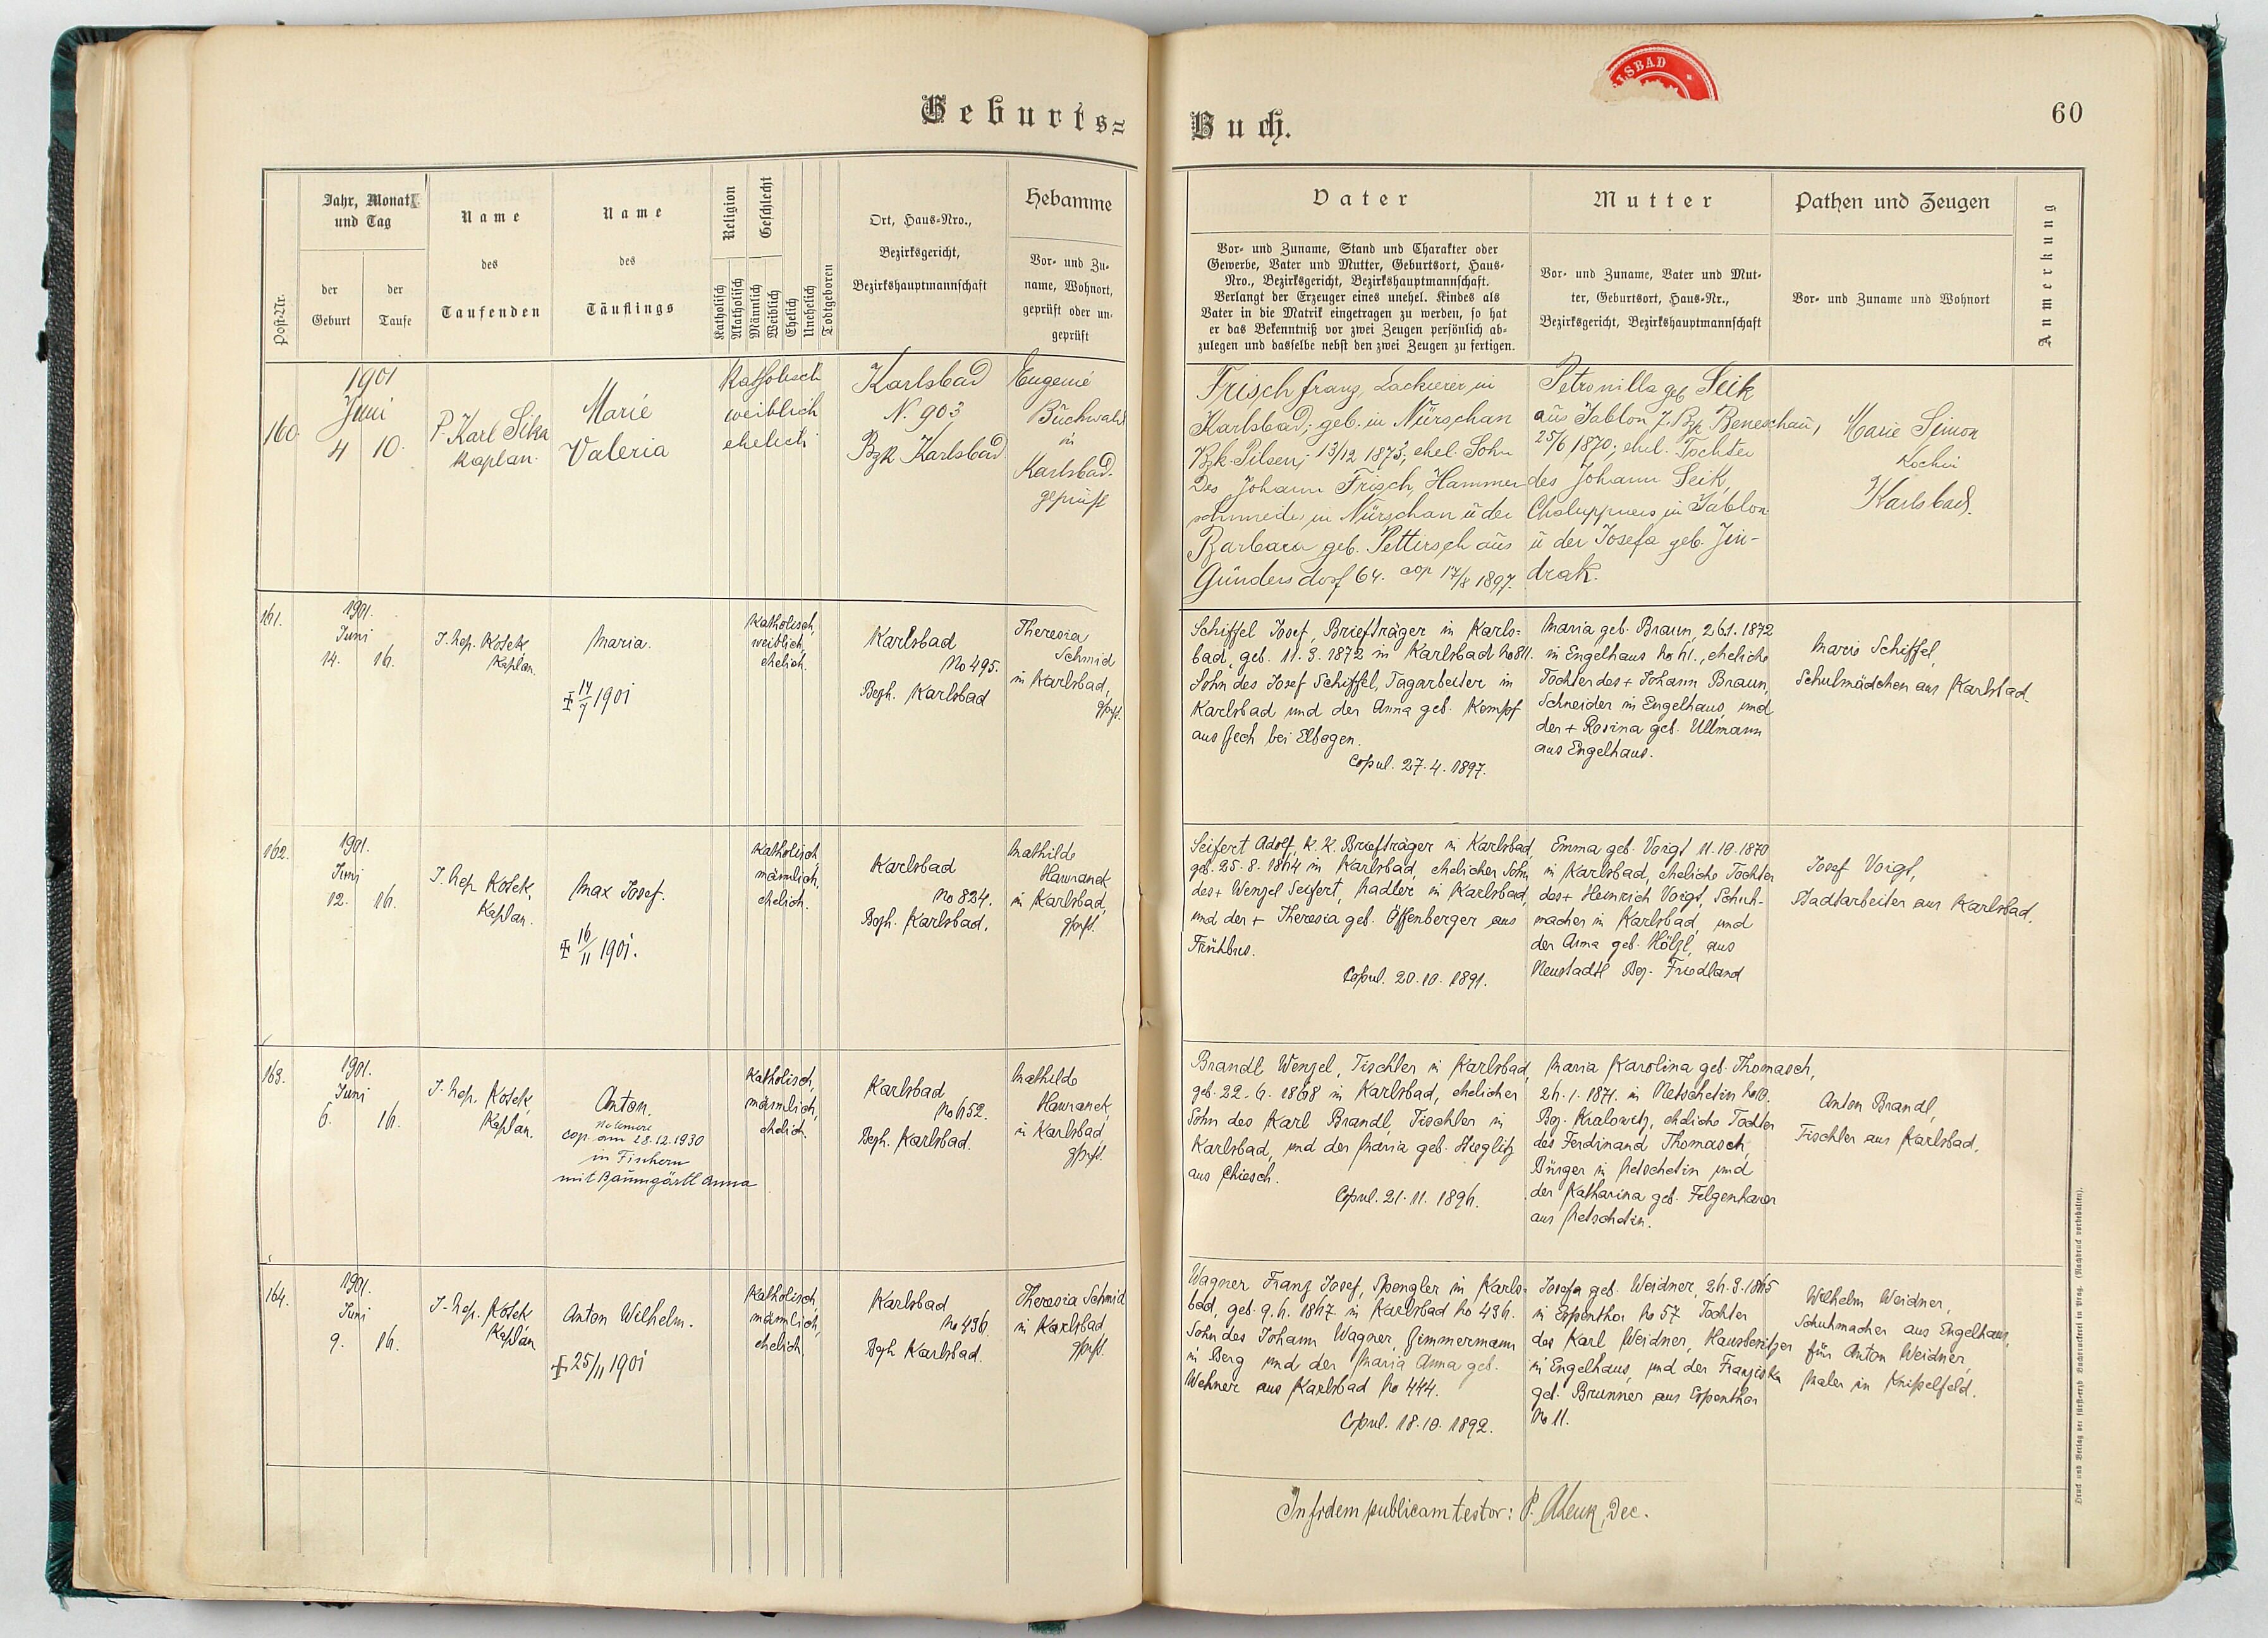 Geburts=
Buch.
LSBAD
60
Post-Nr.
Jahr, Monat
und Tag
der
Geburt
der
Taufe
Name
des
Taufenden
Name
des
Täuflings
Religion
Katholisch
Akatholisch
Geschlecht
Männlich
Weiblich
Ehelich
Unehelich
Todtgeboren
Ort, Haus-Nro.,
Bezirksgericht,
Bezirkshauptmannschaft
Hebamme
Vor- und Zu-
name, Wohnort,
geprüft oder un-
geprüft
Vater
Vor- und Zuname, Stand und Charakter oder
Gewerbe, Vater und Mutter, Geburtsort, Haus-
Nro., Bezirksgericht, Bezirkshauptmannschaft.
Verlangt der Erzeuger eines unehel. Kindes als
Vater in die Matrik eingetragen zu werden, so hat
er das Bekenntniß vor zwei Zeugen persönlich ab-
zulegen und dasselbe nebst den zwei Zeugen zu fertigen.
Mutter
Vor- und Zuname, Vater und Mut-
ter, Geburtsort, Haus-Nr.,
Bezirksgericht, Bezirkshauptmannschaft
Pathen und Zeugen
Vor- und Zuname und Wohnort
Anmerkung
160
1901
Juni
4 10.
P. Karl Sika
Kaplan.
Marie
Valeria
Katholisch
weiblich
ehelich
Karlsbad
N. 903
Bzk Karlsbad
Eugenie
Buchwald
in
Karlsbad.
geprüft
Frisch Franz, Lackierer in
Karlsbad; geb. in Nürschan
Bzk. Pilsen; 13/12 1873; ehel. Sohn
des Johann Frisch, Hammer-
schmiede in Nürschan ü der
Barbara geb. Pettirsch aüs
Gündersdorf 64. cop 17/8 1897.
Petronilla geb Seik
aüs Jablon 7. Bzk Beneschaü,
25/6 1870; ehel. Tochter
des Johann Seik,
Chaluppners in Jablon
ü der Josefa geb. Jin-
drak.
Marie Simon
Köchin
Karlsbad.
161.
1901.
Juni
14. 16.
J. Nep. Košek,
Kaplan.
Maria.
17/7 1901
Katholisch,
weiblich,
ehelich.
Karlsbad
No 495.
Bezh. Karlsbad
Theresia
Schmid
in Karlsbad,
gprft.
Schiffel Josef, Briefträger in Karls-
bad, geb. 11. 3. 1872 in Karlsbad No 811.
Sohn des Josef Schiffel, Tagarbeiter in
Karlsbad und der Anna geb. Kempf
aus Zech bei Elbogen.
Copul. 27. 4. 1897.
Maria geb. Braun, 26 1. 1872
in Engelhaus No 61., eheliche
Tochter des + Johann Braun,
Schneider in Engelhaus, und
der + Rosina geb. Ullmann
aus Engelhaus.
Marie Schiffel,
Schulmädchen aus Karlsbad.
162.
1901.
Juni
12. 16.
J. Nep Košek,
Kaplan.
Max Josef.
16/11 1901.
Katholisch,
männlich,
ehelich.
Karlsbad
No 824.
Bezh. Karlsbad.
Mathilde
Hawranek
in Karlsbad,
gprft.
Seifert Adolf, k. k. Briefträger in Karlsbad,
geb. 25. 8. 1864 in Karlsbad, ehelicher Sohn
des + Wenzel Seifert, Nadler in Karlsbad,
und der + Theresia geb. Öffenberger aus
Frühbus.
Copul. 20. 10. 1891.
Emma geb. Voigt 11. 10. 1870
in Karlsbad, eheliche Tochter
des + Heinrich Voigt, Schuh-
macher in Karlsbad, und
der Anna geb. Hölzl, aus
Neustadtl Bez. Friedland
Josef Voigt,
Stadtarbeiter aus Karlsbad.
163.
1901.
Juni
6. 16.
J. Nep. Košek,
Kaplan.
Anton.
cop. am 28.12.1930
in Fischern
mit Baümgärtl Anna
Katholisch,
männlich,
ehelich.
Karlsbad
No 652.
Bezh. Karlsbad.
Mathilde
Hawranek,
in Karlsbad
gprft.
Brandl Wenzel, Tischler in Karlsbad,
geb. 22. 6. 1868 in Karlsbad, ehelicher
Sohn des Karl Brandl, Tischler in
Karlsbad, und der Maria geb. Stieglitz
aus Chiesch.
Copul. 21. 11. 1896.
Maria Karolina geb. Thomasch,
26. 1. 1871. in Netschetin
Bez. Kralowitz, eheliche Tochter
des Ferdinand Thomasch,
Bürger in Netschetin und
der Katharina geb. Felgenhauer
aus Netschetin.
Anton Brandl,
Tischler aus Karlsbad.
164.
1901.
Juni
9. 16.
J. Nep. Košek,
Kaplan
Anton Wilhelm.
25/11 1901
Katholisch,
männlich,
ehelich.
Karlsbad
No 436.
Bezh Karlsbad.
Theresia Schmid
in Karlsbad
gprft.
Wagner Franz Josef, Spengler in Karls-
bad, geb. 9. 6. 1867 in Karlsbad No 436.
Sohn des Johann Wagner, Zimmermann
in Berg und der Maria Anna geb.
Wehner aus Karlsbad No 444.
Copul. 18. 10. 1892.
Josefa geb. Weidner, 26. 3. 1865
in Espenthor No 57 Tochter
des Karl Weidner, Hausbesitzer
in Engelhaus, und der Franziska
geb. Brunner aus Espenthor
No 11.
Wilhelm Weidner,
Schuhmacher aus Engelhaus,
für Anton Weidner,
Maler in Knißelfeld.
In fidem publicam testor: P. Dec.
Druck und Verlag der fürsterzb. Buchdruckerei in Prag. (Nachdruck vorbehalten).